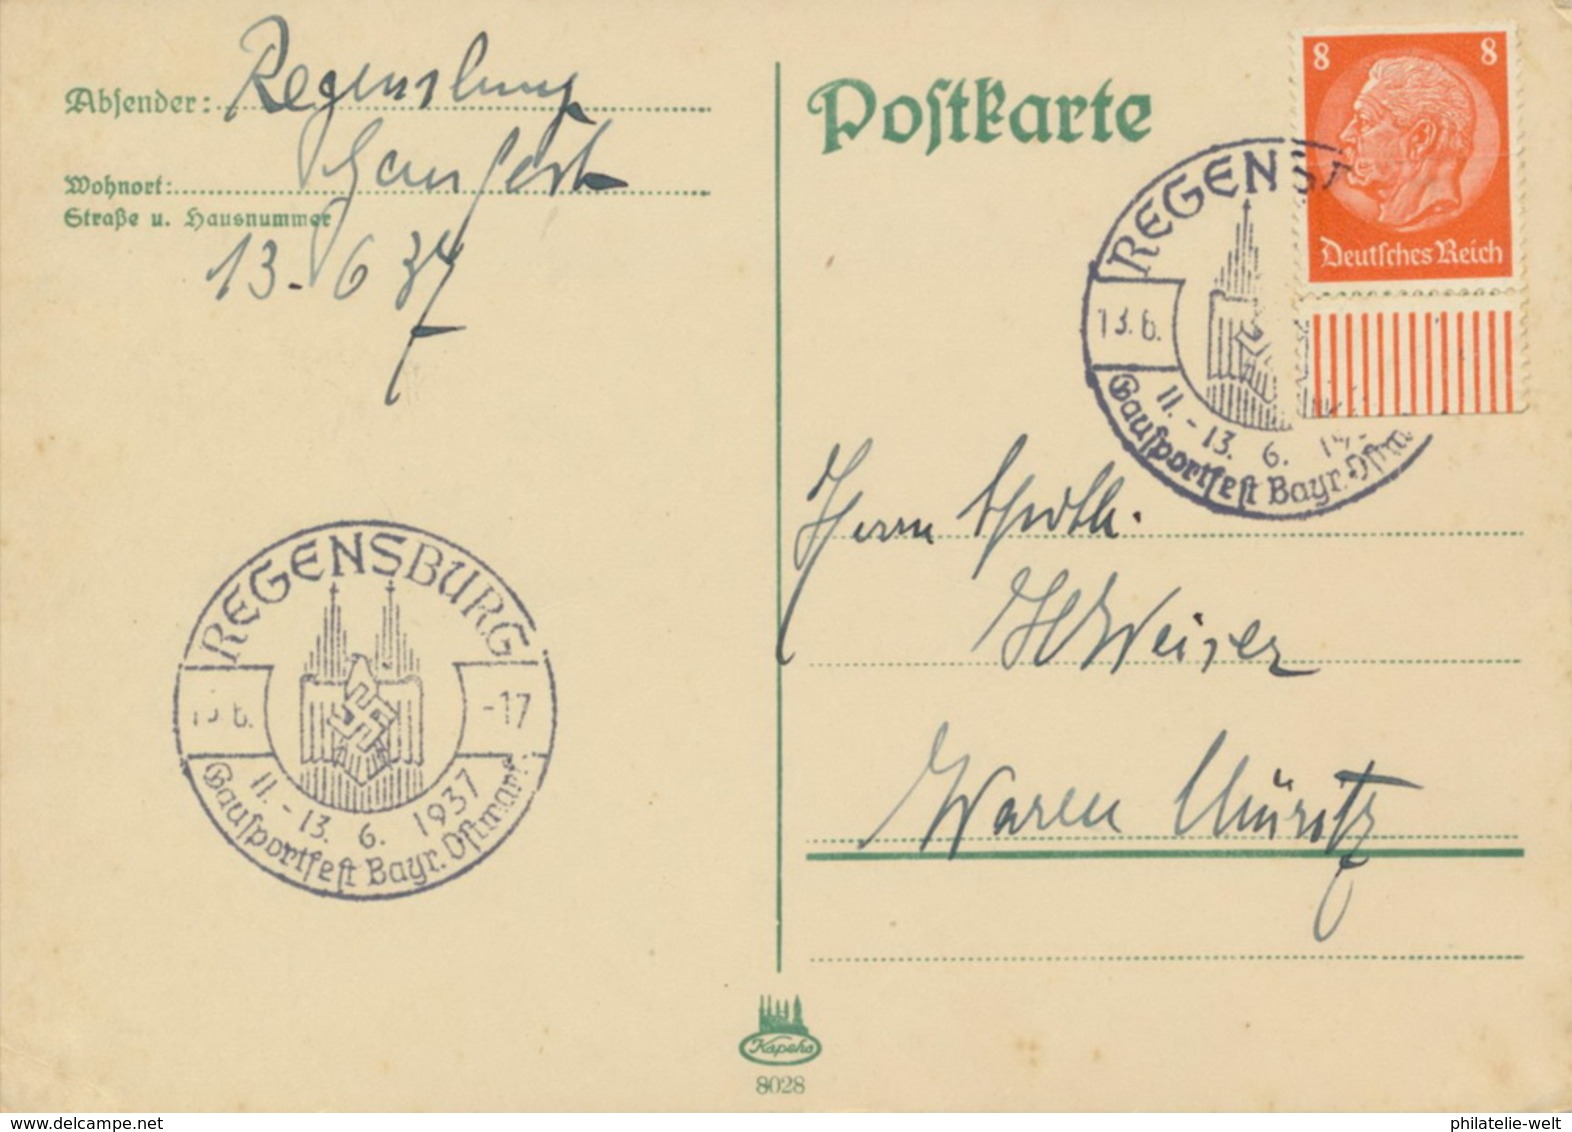 Absender: Regensburg
Gausportfest
Wohnort:
Straße u. Hausnummer
13. 6 37
Postkarte
8 8
Deutsches Reich
REGENS
13.6.
11. - 13. 6. 19
Gausportfest Bayr. Ostm
Herrn
Weiser
Waren Müritz
REGENSBURG
13.6. -17
11. - 13. 6. 1937
Gausportfest Bayr. Ostmark
Kapeha
8028
www.delcampe.net
philatelie-welt